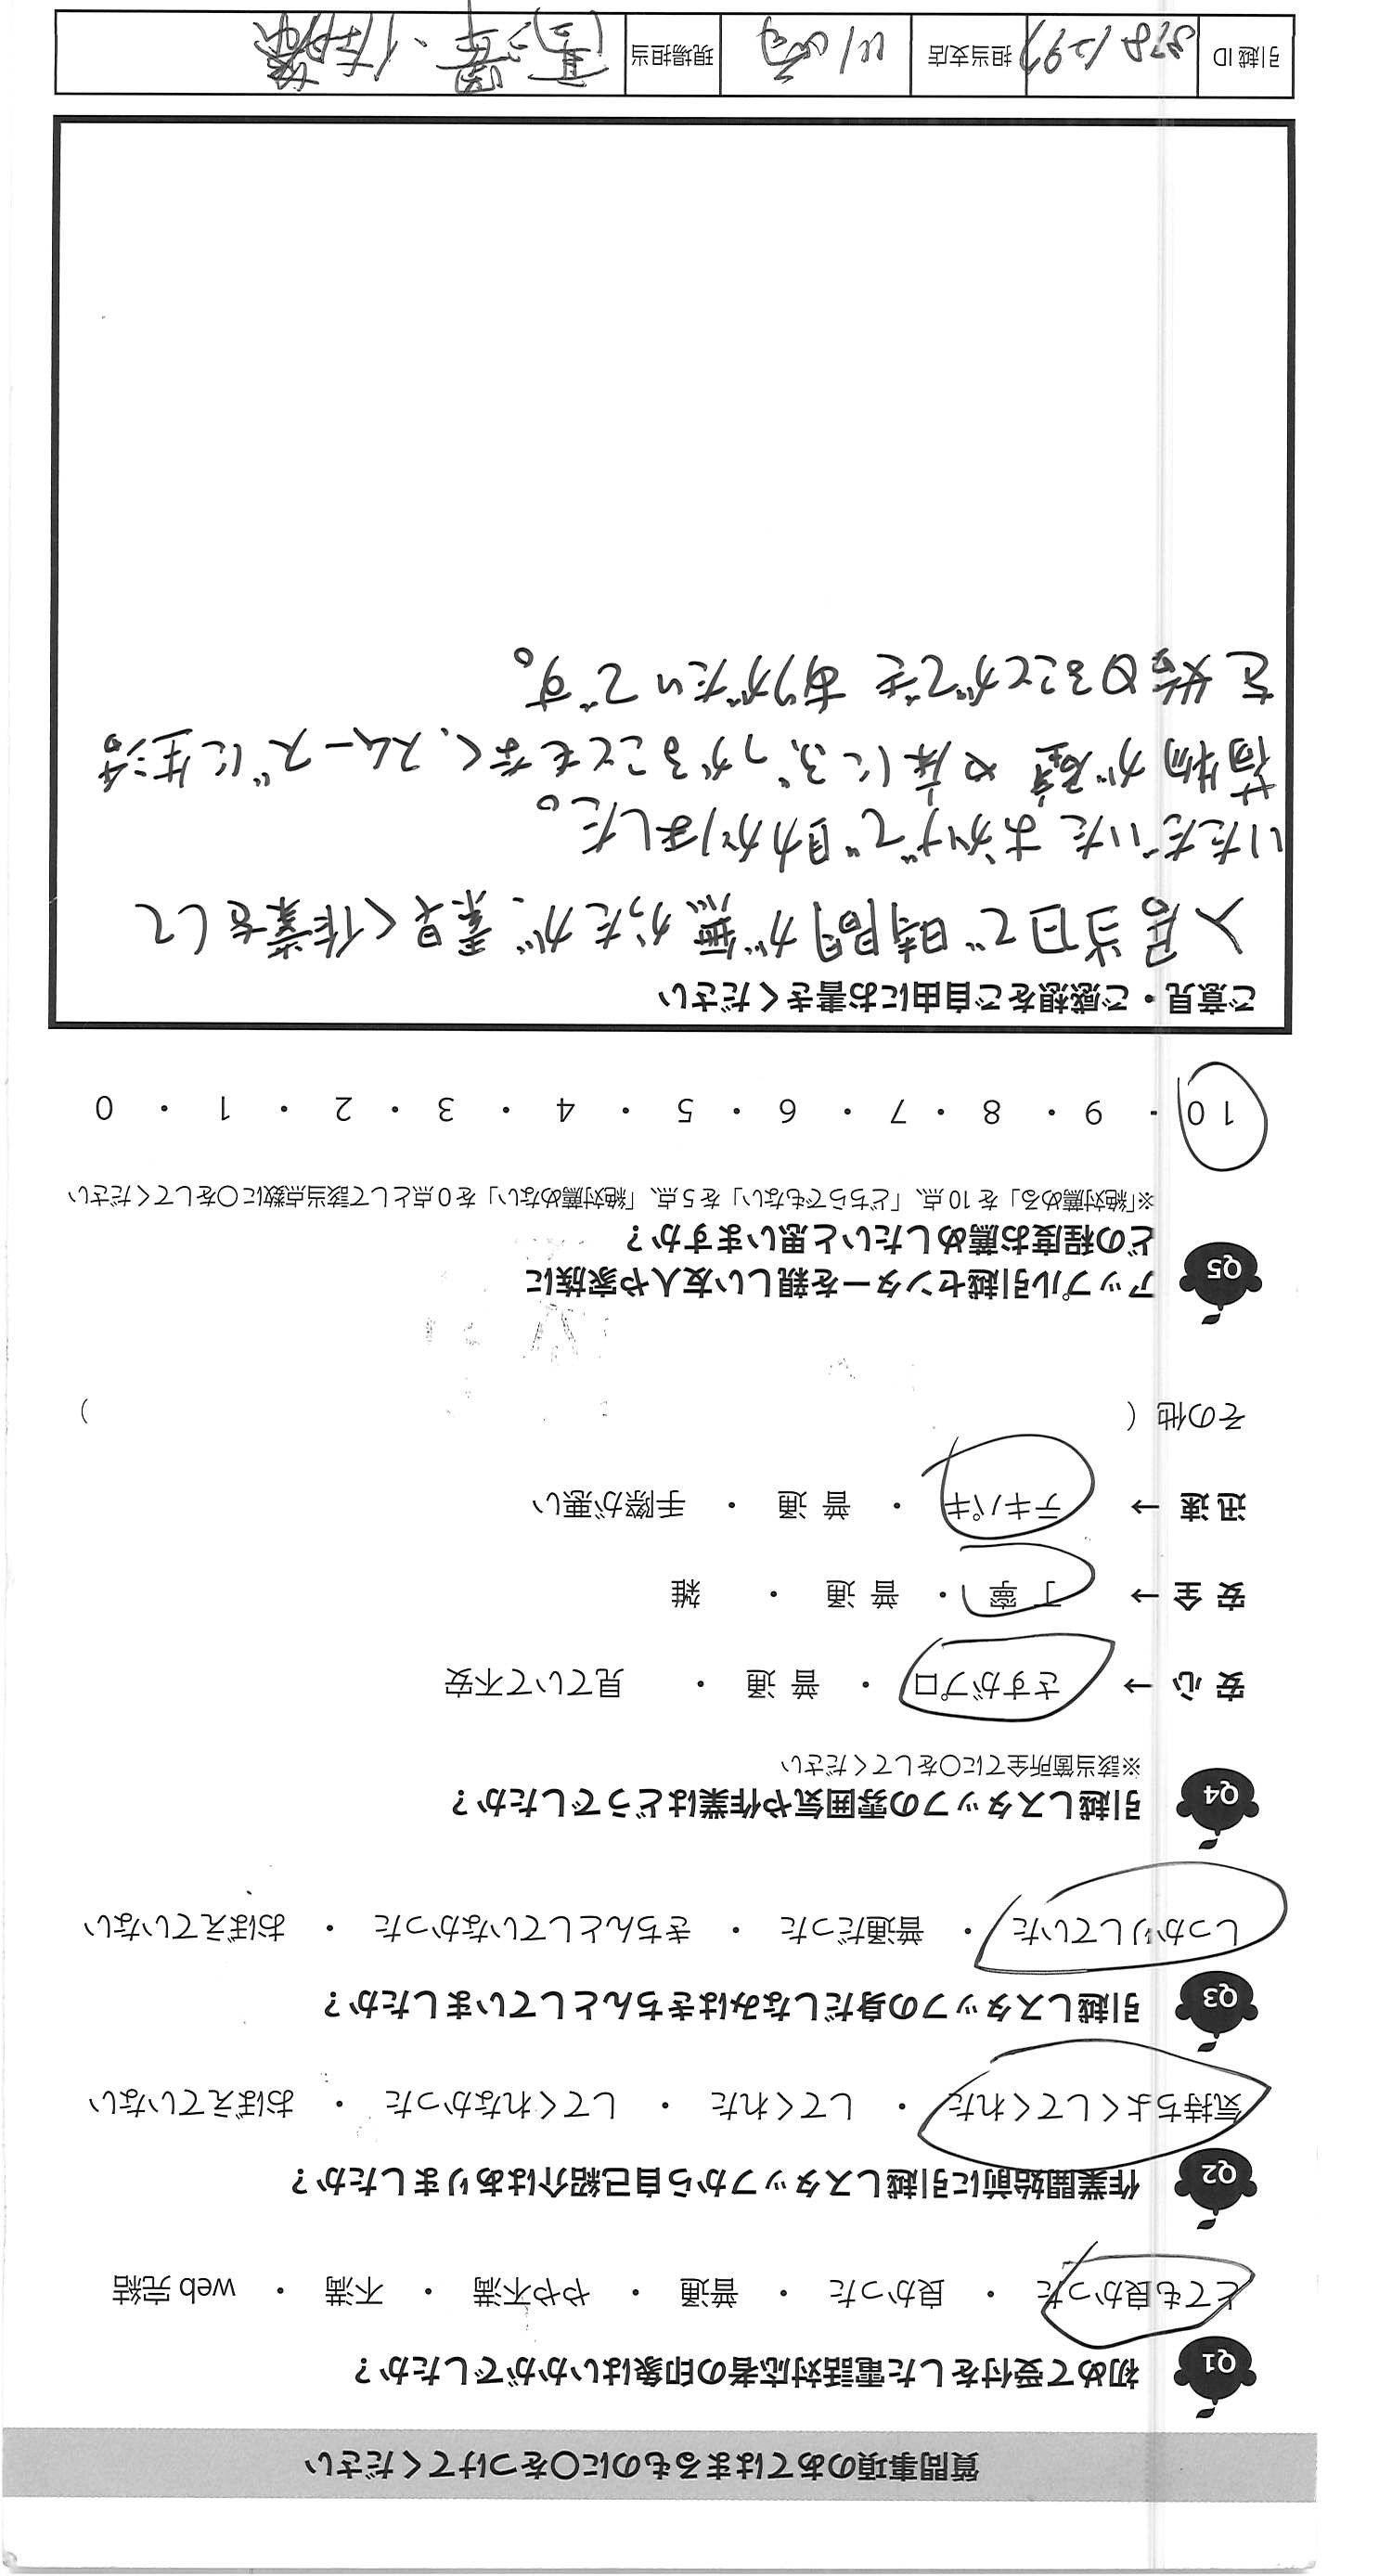 質問事項のあてはまるものに〇をつけてください
Q1 初めて受付をした電話対応者の印象はいかがでしたか？
とても良かった ・ 良かった ・ 普通 ・ やや不満 ・ 不満 ・ web 完結
Q2 作業開始前に引越しスタッフから自己紹介はありましたか？
気持ちよくしてくれた ・ してくれた ・ してくれなかった ・ おぼえていない
Q3 引越しスタッフの身だしなみはきちんとしていましたか？
しっかりしていた ・ 普通だった ・ きちんとしていなかった ・ おぼえていない
Q4 引越しスタッフの雰囲気や作業はどうでしたか？
※該当箇所全てに〇をしてください
安 心 → さすがプロ ・ 普 通 ・ 見ていて不安
安 全 → 丁 寧 ・ 普 通 ・ 雑
迅 速 → テキパキ ・ 普 通 ・ 手際が悪い
その他 ( )
Q5 アップル引越センターを親しい友人や家族に
どの程度お薦めしたいと思いますか？
※「絶対薦める」を 10 点、「どちらでもない」を 5 点、「絶対薦めない」を 0 点として該当点数に〇をしてください
10 ・ 9 ・ 8 ・ 7 ・ 6 ・ 5 ・ 4 ・ 3 ・ 2 ・ 1 ・ 0
ご意見・ご感想をご自由にお書きください
入居当日で時間が無かったが、素早く作業をして
いただいたおかげで助かりました。
荷物が壁や床にぶつかることもなく、スムーズに生活
を始めることができありがたいです。
引越 ID 担当支店 川崎 現場担当 佐藤